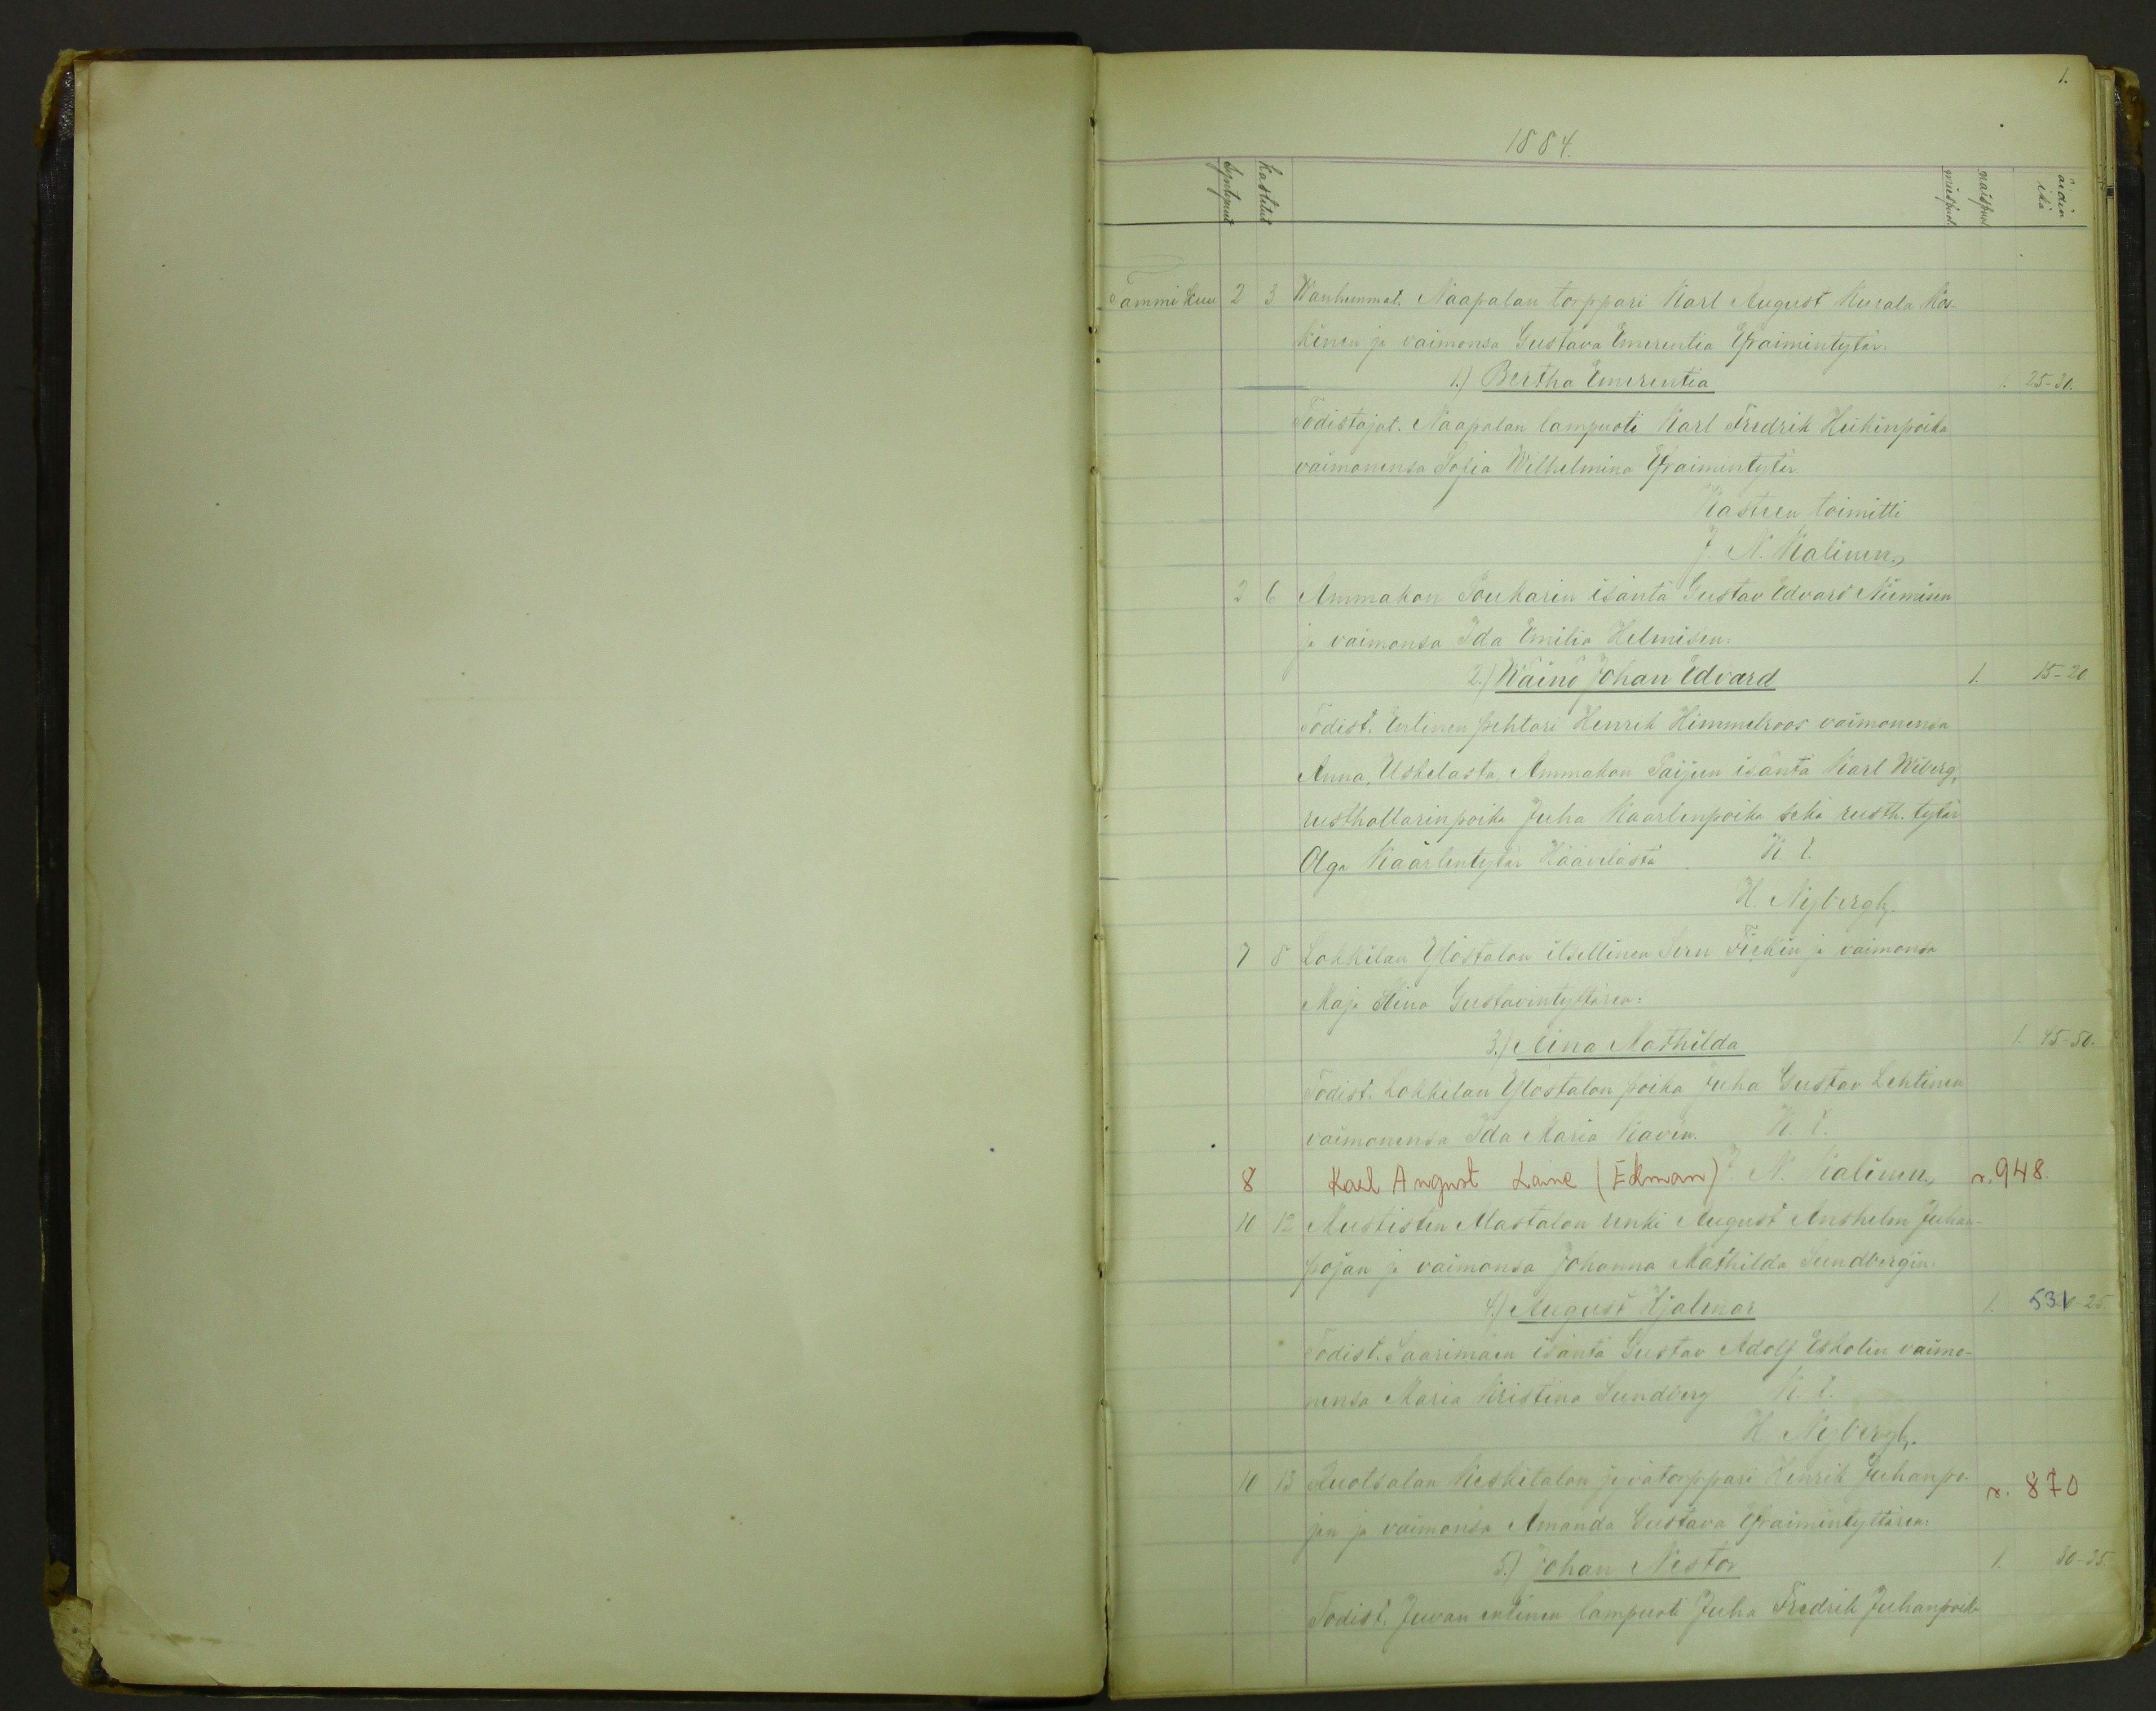 1.
1884.
Syntynut
Kastettu
miespuol.
näispuol.
äidin
ikä
Tammi Kuu 2 3 Wanhemmat. Naapalan torppari Karl August Kurala Kos-
kinen ja vaimonsa Gustava Emerentia Efraimintytär.
1.) Bertha Emerentia 1. 25-30.
Todistajat. Naapalan lampuoti Karl Fredrik Heikinpoika
vaimonensa Sofia Wilhelmina Efraimintytär
Kasteen toimitti
J. N. Kalinen.
2 6 Ammakon Poukarin isäntä Gustav Edvard Niemisen
ja vaimonsa Ida Emilia Helmisen:
2.) Wäinö Johan Edvard 1. 15-20
Todist. Entinen pehtori Henrik Himmelroos vaimonensa
Anna, Uskelasta, Ammakon Paijun isäntä Karl Wiberg,
rusthollarinpoika Juha Kaarlenpoika sekä rusth. tytär
Olga Kaarlentytär K t.
H. Nybergh.
7 8 Lohkilan Ylöstalon itsellinen ja vaimonsa
Maja Stina Gustavintyttären:
3.) Aina Mathilda 1. 45-50.
Todist. Lohkilan Ylöstalon poika Juha Gustav Lehtinen
vaimonensa Ida Maria Kavén. K t.
8 Karl August Laine (Ekman) J. N. Kalinen, r. 948.
10 12 Mustisten Alastalon renki August Anshelm Juhan-
pojan ja vaimonsa Johanna Mathilda Sundbergin:
4.) August Hjalmar 1. 531 -25
Todist. Saarimäen isäntä Gustav Adolf Eskolin vaimo-
nensa Maria Kristina Sundberg K. t.
H Nybergh.
10 13 Ruotsalan Keskitalon jyvätorppari Henrik Juhanpo- r. 870
jan ja vaimonsa Amanda Gustava Efraimintyttären:
5.) Johan Nestor 1. 30-35.
Todist. Juvan entinen lampuoti Juha Fredrik Juhanpoika